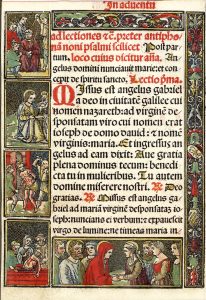 In adventu
ad lectiones & cͤ. preter antipho
nā noni psalmi scilicet Post par
tum, loco cuius dicitur aña. An
gelus domini nunciauit marie: et con
cepit de spiritu sancto. Lectio pͥma.
Missus est angelus gabriel
a deo in ciuitatē galilee cui
nomen nazareth: ad virginē de
sponsatam viro cui nomen erat
ioseph de domo dauid: & nomē
virginis: maria. Et ingressus an
gelus ad eam dixit: Aue gratia
plena dominus tecum: benedi
cta tu in mulieribus. Tu autem
domine miserere nostri. ℞ Deo
gratias. ℞ Missus est angelus ga
briel ad mariā virginē desponsatā io
seph: nuncians ei verbum: et expauescit
virgo de lumine: ne timeas maria in